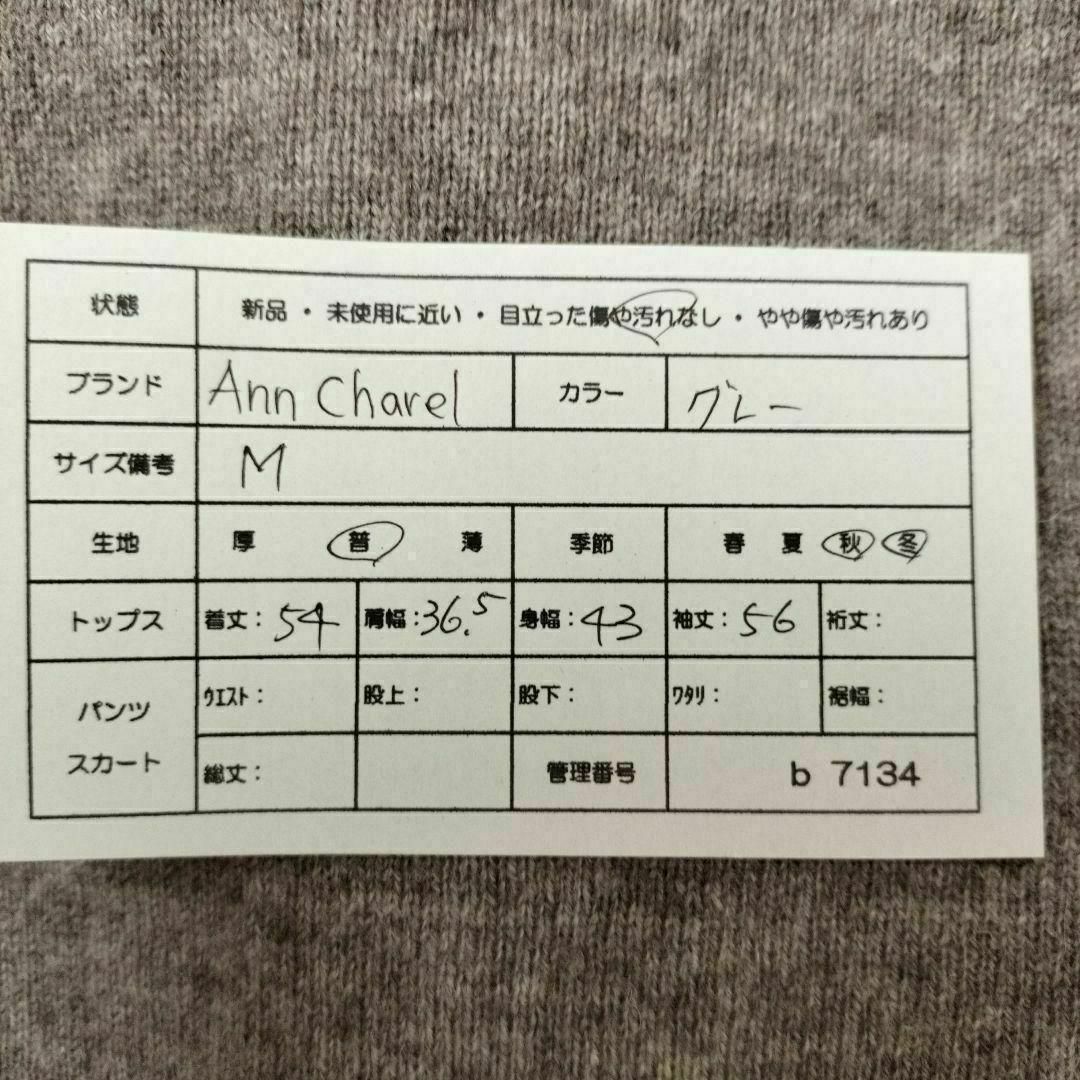 状態 新品 ・ 未使用に近い ・ 目立った傷や汚れなし ・ やや傷や汚れあり
ブランド Ann Charel カラー グレー
サイズ備考 M
生地 厚 普 薄 季節 春 夏 秋 冬
トップス 着丈: 54 肩幅: 36.5 身幅: 43 袖丈: 56 裄丈:
パンツ スカート ウエスト: 股上: 股下: ワタリ: 裾幅:
総丈: 管理番号 b 7134